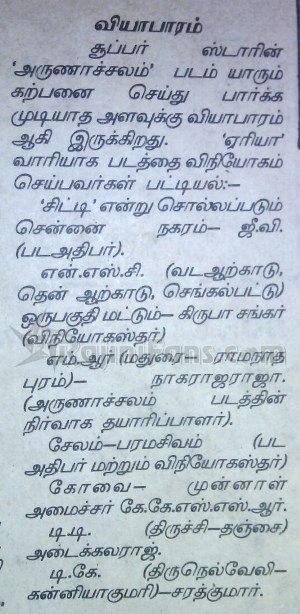 வியாபாரம்
சூப்பர் ஸ்டாரின்
'அருணாச்சலம்' படம் யாரும்
கற்பனை செய்து பார்க்க
முடியாத அளவுக்கு வியாபாரம்
ஆகி இருக்கிறது. 'ஏரியா'
வாரியாக படத்தை விநியோகம்
செய்பவர்கள் பட்டியல்:—
'சிட்டி' என்று சொல்லப்படும்
சென்னை நகரம்— ஜீ.வி.
(பட அதிபர்).
என்.எஸ்.சி. (வட ஆற்காடு,
தென் ஆற்காடு, செங்கல்பட்டு)
ஒருபகுதி மட்டும்— கிருபா சங்கர்
(விநியோகஸ்தர்)
எம்.ஆர் (மதுரை— ராமநாத
புரம்)— நாகராஜராஜா.
(அருணாச்சலம் படத்தின்
நிர்வாக தயாரிப்பாளர்).
சேலம்—பரமசிவம் (பட
அதிபர் மற்றும் விநியோகஸ்தர்)
கோவை— முன்னாள்
அமைச்சர் கே.கே.எஸ்.எஸ்.ஆர்.
டி.டி. (திருச்சி—தஞ்சை)
அடைக்கலராஜ்.
டி.கே. (திருநெல்வேலி—
கன்னியாகுமரி)—சரத்குமார்.